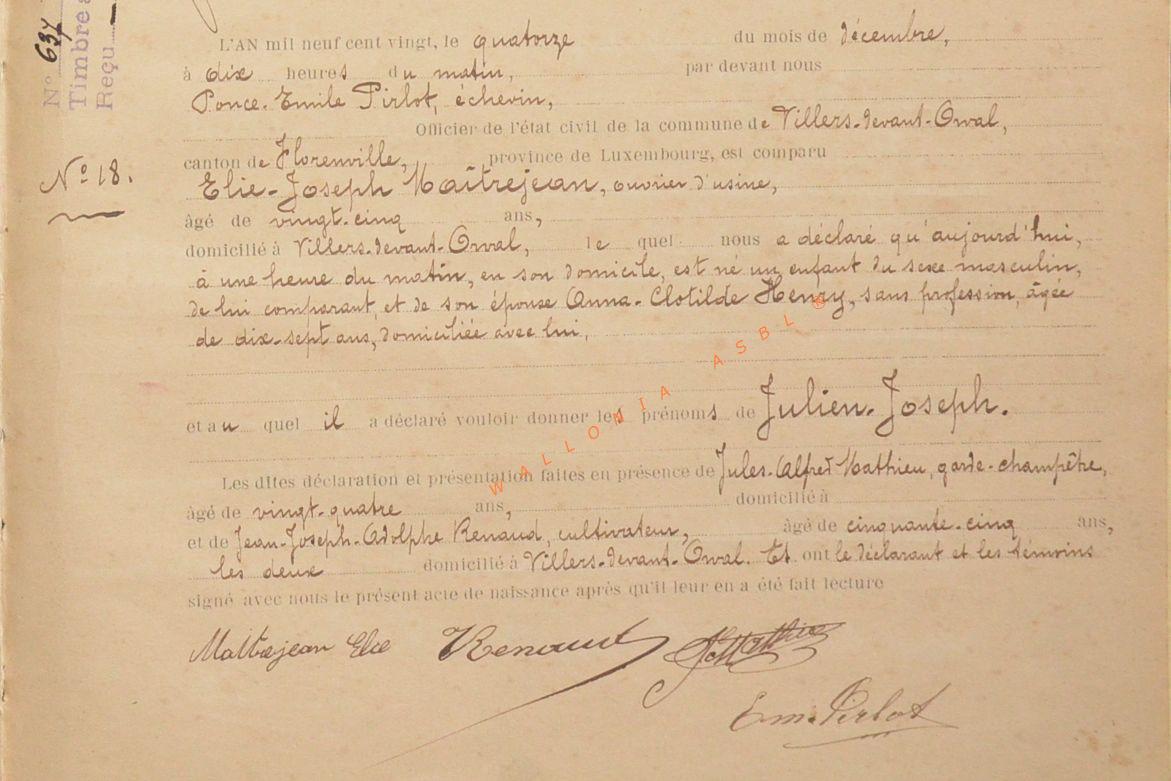 N° 637
Timbre
Reçu
N° 18.
L'AN mil neuf cent vingt, le quatorze du mois de décembre,
à dix heures du matin, par devant nous
Ponce-Emile Pirlot, échevin,
Officier de l'état civil de la commune de Villers-devant-Orval,
canton de Florenville, province de Luxembourg, est comparu
Elie-Joseph Maîtrejean, ouvrier d'usine,
âgé de vingt-cinq ans,
domicilié à Villers-devant-Orval, le quel nous a déclaré qu'aujourd'hui,
à une heure du matin, en son domicile, est né un enfant du sexe masculin,
de lui comparant, et de son épouse Anna-Clotilde Henry, sans profession, âgée
de dix-sept ans, domiciliée avec lui,
et au quel il a déclaré vouloir donner les prénoms de Julien-Joseph.
Les dites déclaration et présentation faites en présence de Jules-Alfred Mathieu, garde-champêtre,
âgé de vingt-quatre ans, domicilié à
et de Jean-Joseph-Adolphe Renaud, cultivateur, âgé de cinquante-cinq ans,
les deux domicilié à Villers-devant-Orval. Et ont le déclarant et les témoins
signé avec nous le présent acte de naissance après qu'il leur en a été fait lecture
Maitrejean Elie Renaud JMathieu
Em. Pirlot
WALLONIA ASBL ®